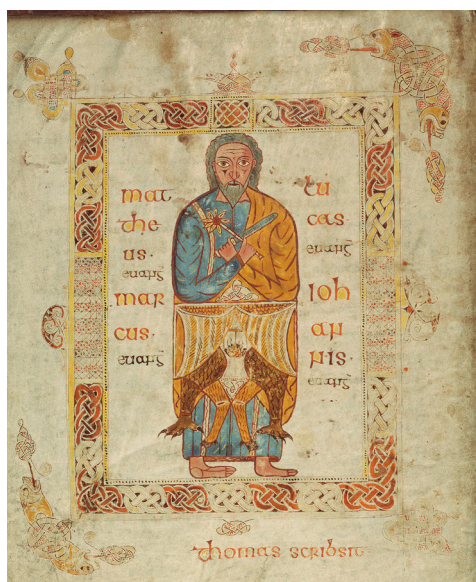 mat
the
us·
euang̅
mar
cus·
euang̅
lu
cas·
euang̅
Ioh
an
nis·
euang̅
thomas scribsit